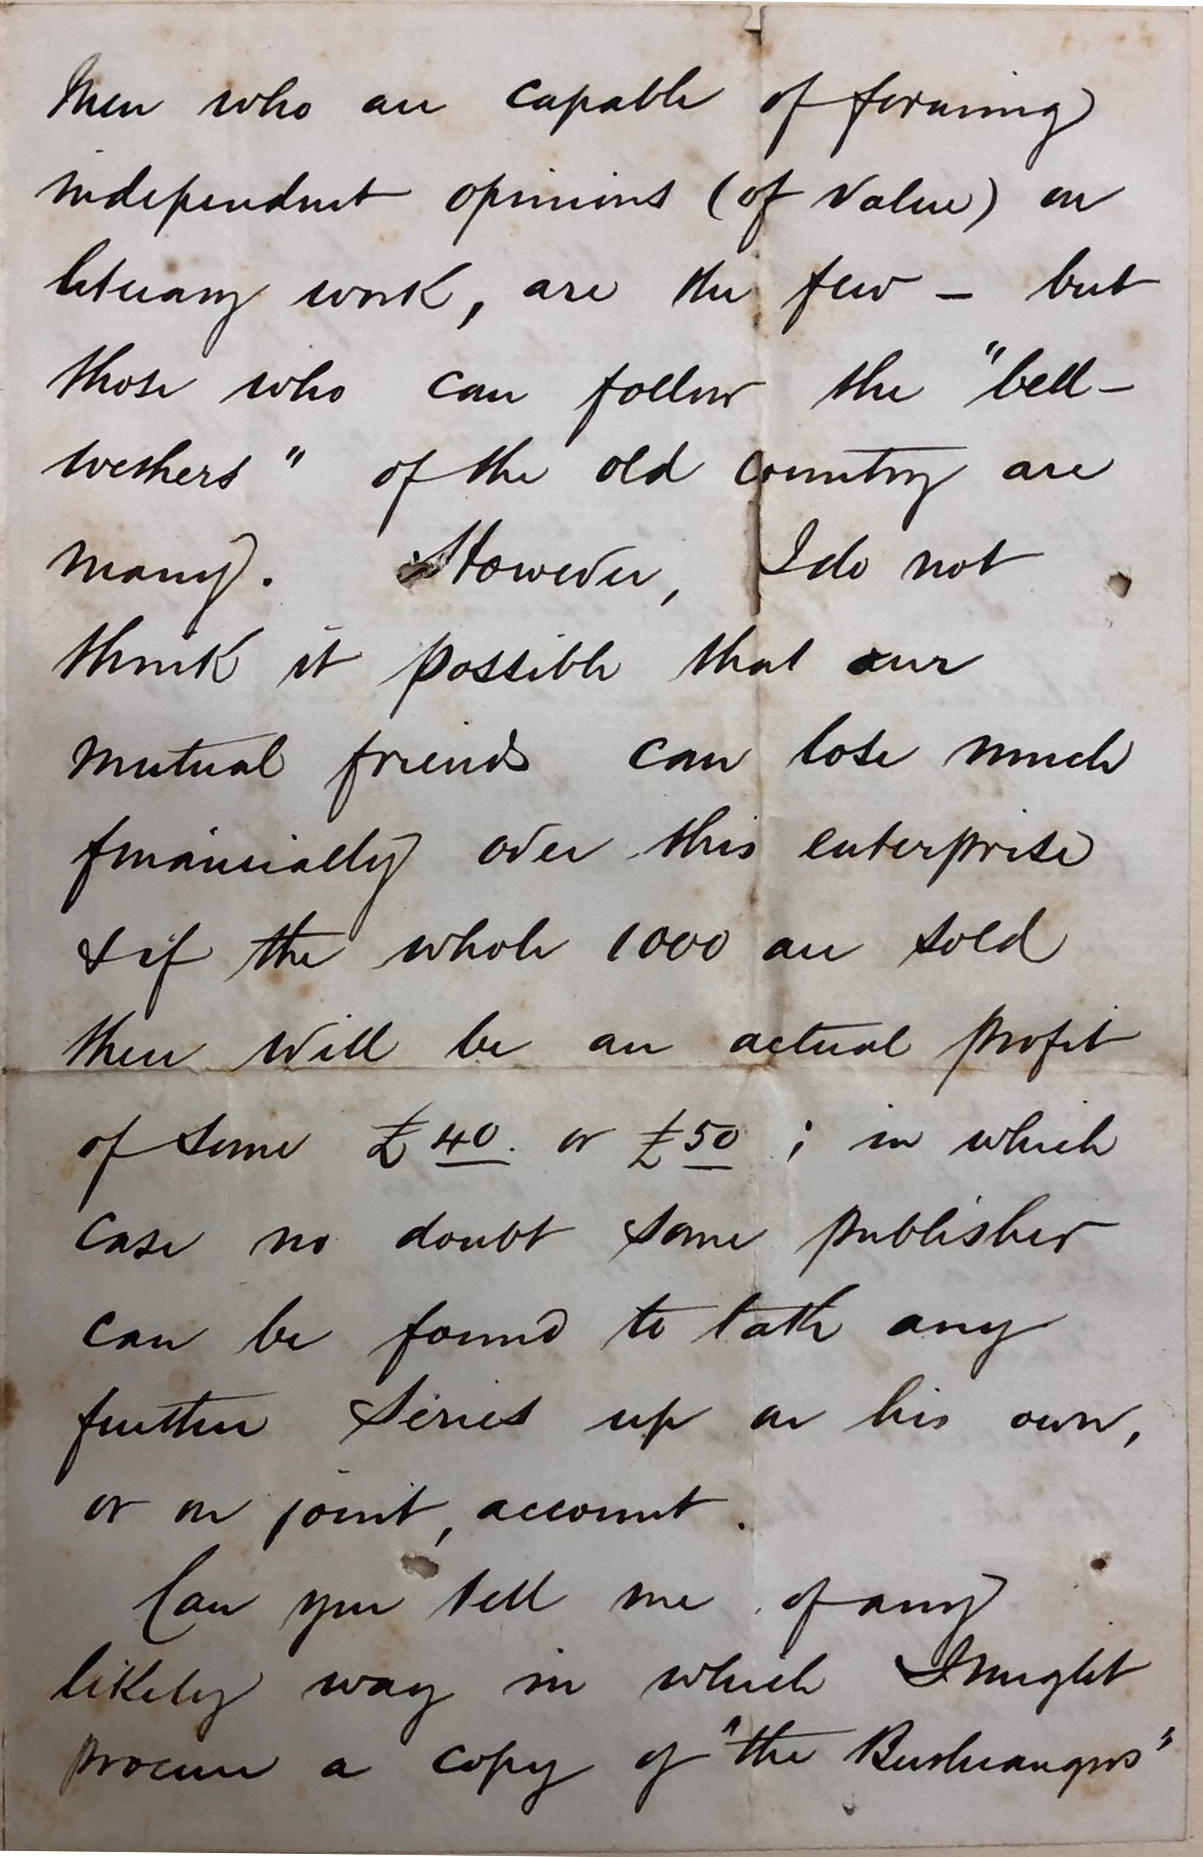 Men who are capable of forming
independent opinions (of value) on
literary work, are the few – but
those who can follow the "bell-
wethers" of the old country are
many. However, I do not
think it possible that our
mutual friends can lose much
financially over this enterprise
& if the whole 1000 are sold
there will be an actual profit
of some £40. or £50 ; in which
case no doubt some publisher
can be found to take any
further series up on his own,
or on joint, account.
Can you tell me of any
likely way in which I might
procure a copy of "the Bushrangers"